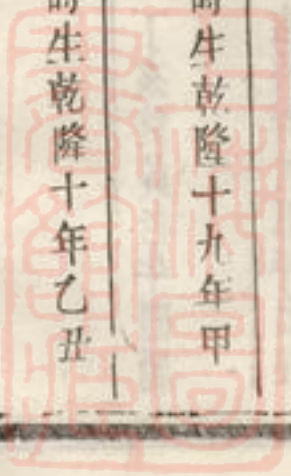 時生乾隆十九年甲
時生乾隆十年乙丑